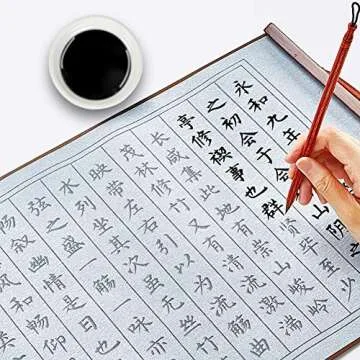 永和九年
之初会于山阴之
亭修禊事也群贤毕至
长咸集此地有崇山峻岭
茂林修竹又有清流激湍
映带左右引以为流觞曲
水列坐其次虽无丝竹
弦之盛一觞一咏亦
畅叙幽情是日也
风和畅仰